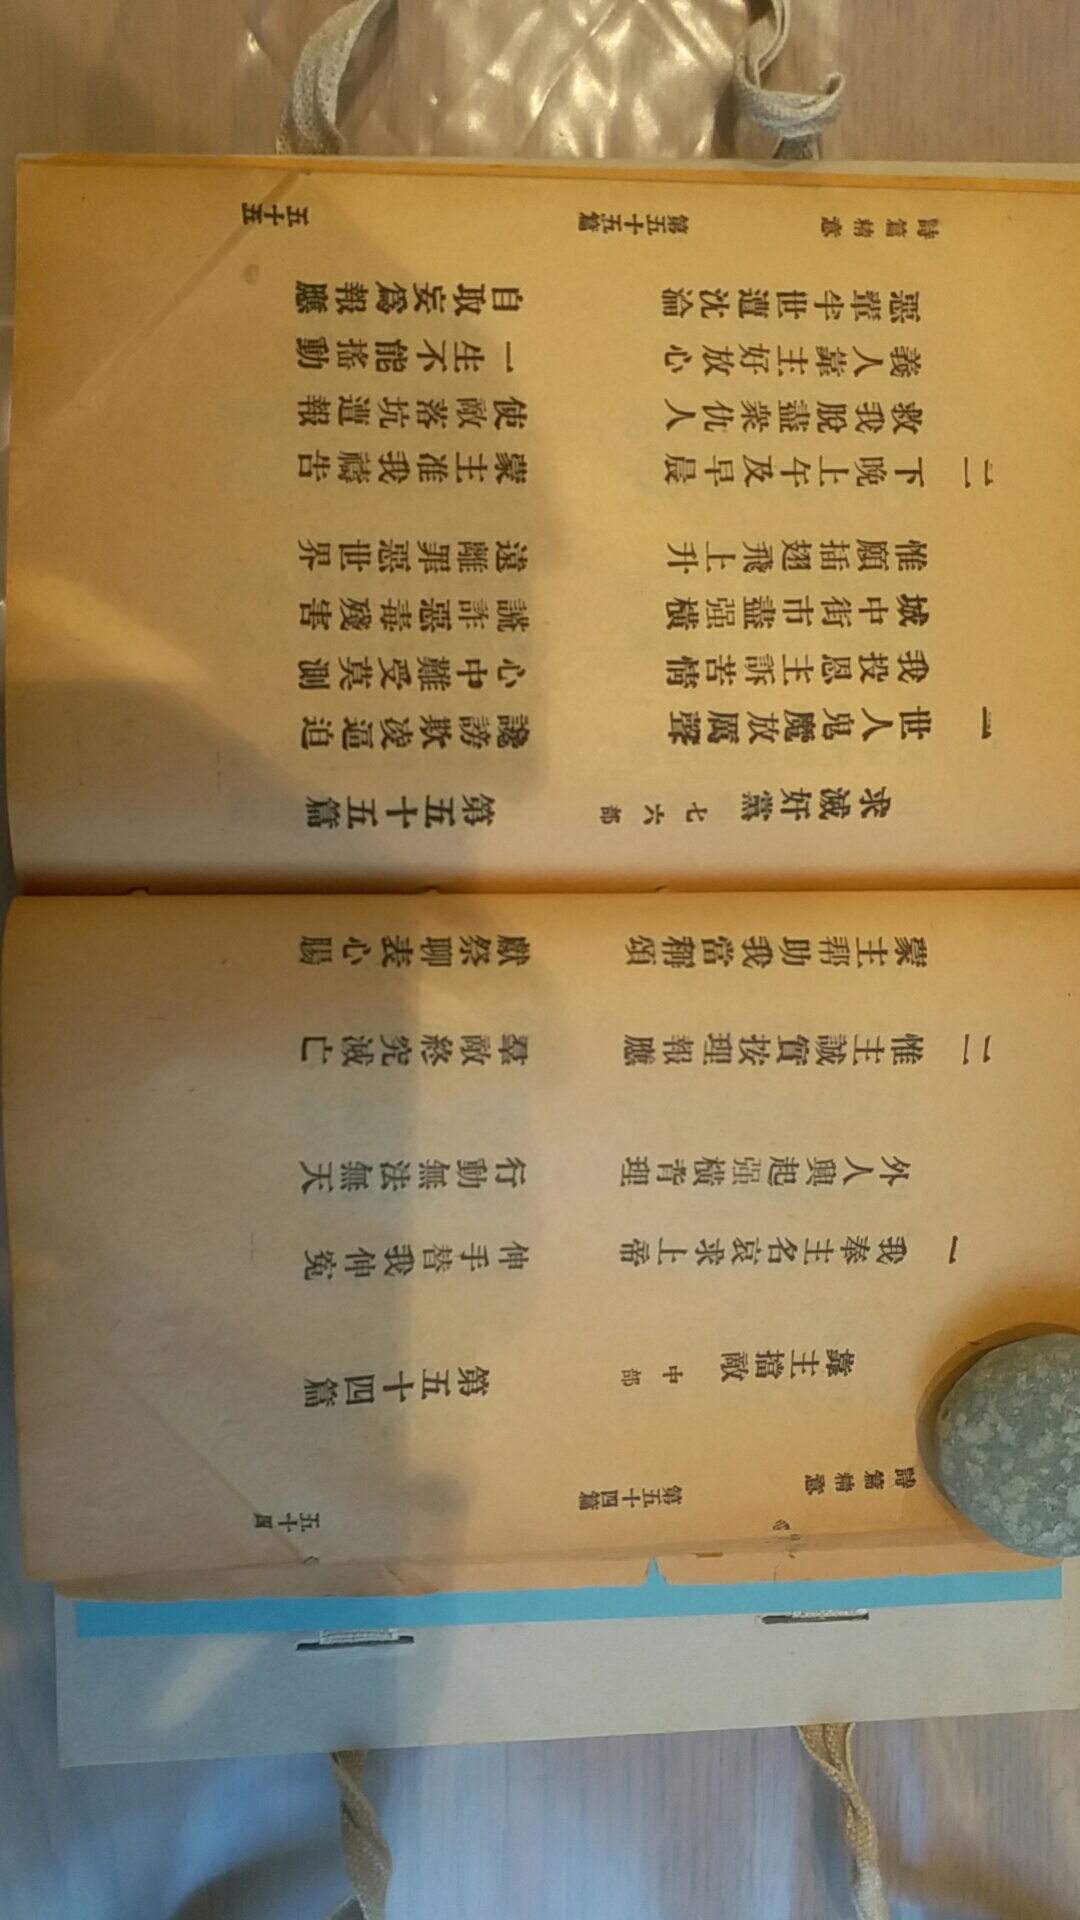 詩篇精意 第五十四篇 五十四
靠主擋敵 中部 第五十四篇
一 我奉主名哀求上帝 伸手替我伸冤
外人興起强橫背理 行動無法無天
二 惟主誠實按理報應 羣敵終究滅亡
蒙主幫助我當稱頌 獻祭聊表心腸
求滅奸黨 七六部 第五十五篇
一 世人鬼魔放厲聲 讒謗欺凌逼迫
我投恩主訴苦情 心中難受莫測
城中街市盡强橫 謊詐惡毒殘害
惟願插翅飛上升 遠離罪惡世界
二 下晚上午及早晨 蒙主准我禱告
救我脫盡衆仇人 使敵落坑遭報
義人靠主好放心 一生不能搖動
惡輩半世遭沈淪 自取妄爲報應
詩篇精意 第五十五篇 五十五